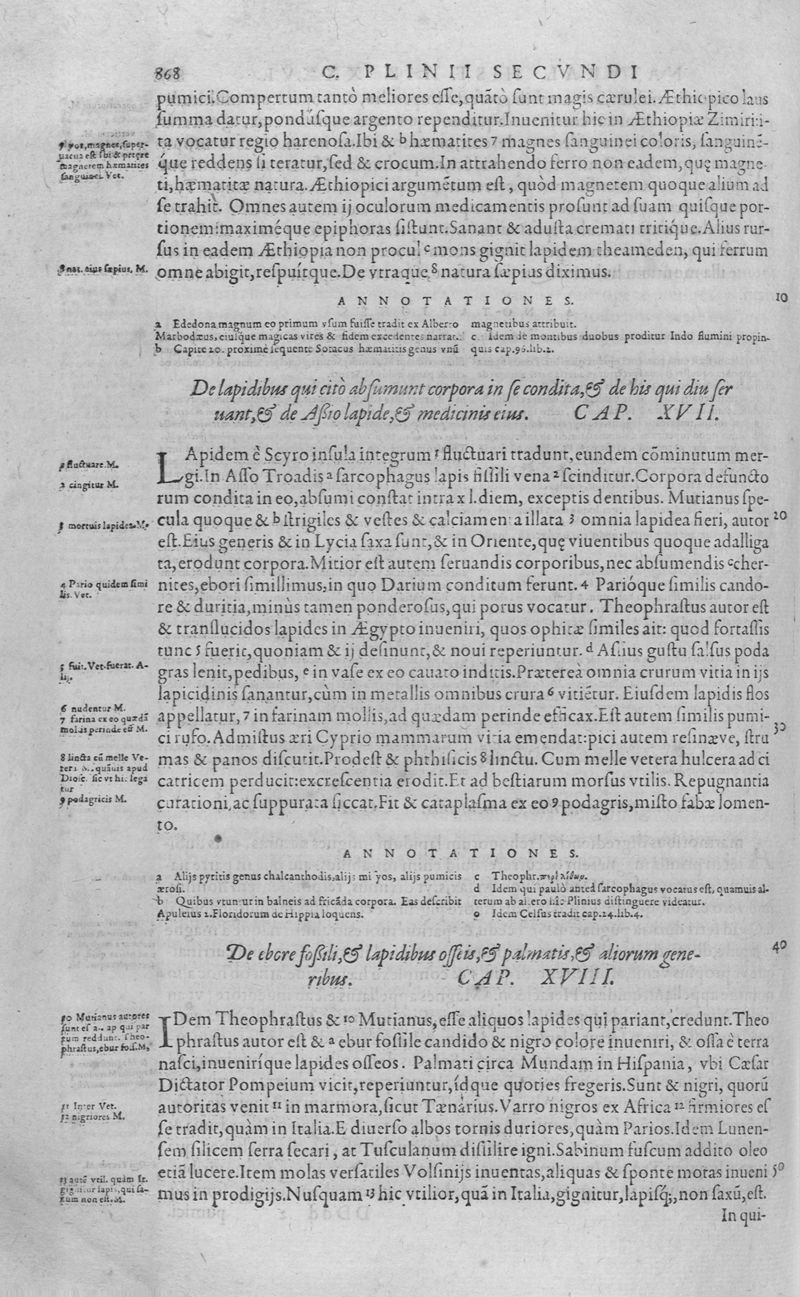 868
C. PLINII SECVNDI
pumici. Compertum tantò meliores eſſe, quãtò ſunt magis cærulei. Æthiopico laus
ſumma datur, pondúſque argento rependitur. Inuenitur hic in Æthiopiæ Zimiri: i-
ta vocatur regio harenoſa. Ibi & b hæmatites 7 magnes ſanguinei coloris, ſanguinē-
que reddens ſi teratur, ſed & crocum. In attrahendo ferro non eadem, quę magne-
ti, hæmatitæ natura. Æthiopici argumētum eſt, quòd magnetem quoque alium ad
ſe trahit. Omnes autem ij oculorum medicamentis proſunt ad ſuam quiſque por-
tionem: maximéque epiphoras ſiſtunt. Sanant & aduſta cremati tritíque. Alius rur-
ſus in eadem Æthiopia non procul c mons gignit lapidem theameden, qui ferrum
omne abigit, reſpuítque. De vtraque 8 natura ſæpius diximus.
7 magnes, ſuper-
magnetem hæmatites
ſanguinei. Vet.
8 nat. eius ſæpius. M.
10
ANNOTATIONES.
a Ededona magnum eo primum vſum fuiſſe tradit ex Alberto
Marbodæus, eiuſque magicas vires & fidem excedentes narrat.
b Capite 20. proximè ſequente Sotacus hæmatitis genus vnũ
magnetibus attribuit.
c Idem de montibus duobus proditur Indo flumini propin-
quis cap. 96. lib. 2.
De lapidibus qui citò abſumunt corpora in ſe condita, & de his qui diu ſer
uant, & de Aſſio lapide, & medicinis eius. CAP. XVII.
LApidem è Scyro inſula integrum 1 fluctuari tradunt, eundem cõminutum mer-
gi. In Aſſo Troadis a ſarcophagus lapis fiſſili vena 2 ſcinditur. Corpora defuncto
rum condita in eo, abſumi conſtat intra xl. diem, exceptis dentibus. Mutianus ſpe-
cula quoque & b ſtrigiles & veſtes & calciamenta illata 3 omnia lapidea fieri, autor
eſt. Eius generis & in Lycia ſaxa ſunt, & in Oriente, quę viuentibus quoque adalliga
ta, erodunt corpora. Mitior eſt autem ſeruandis corporibus, nec abſumendis c cher-
nites, ebori ſimillimus, in quo Darium conditum ferunt. 4 Parióque ſimilis cando-
re & duritia, minùs tamen ponderoſus, qui porus vocatur. Theophraſtus autor eſt
& tranſlucidos lapides in Ægypto inueniri, quos ophitæ ſimiles ait: quod fortaſſis
tunc 5 fuerit, quoniam & ij deſinunt, & noui reperiuntur. d Aſſius guſtu ſalſus poda
gras lenit, pedibus, e in vaſe ex eo cauato inditis. Præterea omnia crurum vitia in ijs
lapicidinis ſanantur, cùm in metallis omnibus crura 6 vitiētur. Eiuſdem lapidis flos
appellatur, 7 in farinam mollis, ad quædam perinde efficax. Eſt autem ſimilis pumi-
ci rufo. Admiſtus æri Cyprio mammarum vitia emendat: pici autem reſinæve, ſtru
mas & panos diſcutit. Prodeſt & phthiſicis 8 linctu. Cum melle vetera hulcera ad ci
catricem perducit: excreſcentia erodit. Et ad beſtiarum morſus vtilis. Repugnantia
curationi, ac ſuppurata ſiccat. Fit & cataplaſma ex eo 9 podagris, miſto fabæ lomen-
to.
1 fluctuare. M.
2 cingitur M.
3 mortuis lapidea. M.
4 Pario quidem ſimi
lis. Vet.
5 fuit. Vet. fuerat. A-
lij.
6 nudentur M.
7 farina ex eo quædã
mollis perinde eſt M.
8 lincta cũ melle Ve-
9 podagricis M.
20
30
ANNOTATIONES.
a Alijs pyritis genus chalcanthodis, alijs mi yos, alijs pumicis
æroſi.
b Quibus vtuntur in balneis ad fricãda corpora. Eas deſcribit
Apuleius 2. Floridorum de Hippia loquens.
c Theophr. περὶ λίθων.
d Idem qui paulò anteà ſarcophagus vocatus eſt, quamuis al-
terum ab altero hîc Plinius diſtinguere videatur.
e Idem Celſus tradit cap. 24. lib. 4.
De ebore foſſili, & lapidibus oſſeis, & palmatis, & aliorum gene-
ribus. CAP. XVIII.
40
IDem Theophraſtus & 10 Mutianus, eſſe aliquos lapides qui pariant, credunt. Theo
phraſtus autor eſt & a ebur foſſile candido & nigro colore inueniri, & oſſa è terra
naſci, inueniríque lapides oſſeos. Palmati circa Mundam in Hiſpania, vbi Cæſar
Dictator Pompeium vicit, reperiuntur, ídque quoties fregeris. Sunt & nigri, quorũ
autoritas venit 11 in marmora, ſicut Tænarius. Varro nigros ex Africa 12 firmiores eſ
ſe tradit, quàm in Italia. E diuerſo albos tornis duriores, quàm Parios. Idem Lunen-
ſem ſilicem ſerra ſecari, at Tuſculanum diſſilire igni. Sabinum fuſcum addito oleo
etiã lucere. Item molas verſatiles Volſinijs inuentas, aliquas & ſponte motas inueni
mus in prodigijs. Nuſquam 13 hic vtilior, quã in Italia, gignitur, lapiſq;, non ſaxũ, eſt.
10 Mutianus autores
phraſtus, ebur foſ. M.
11 Inter Vet.
12 nigriores M.
13 autē vtil. quàm It.
gignitur lapis, qui ſa-
xum non eſt. M.
50
In qui-